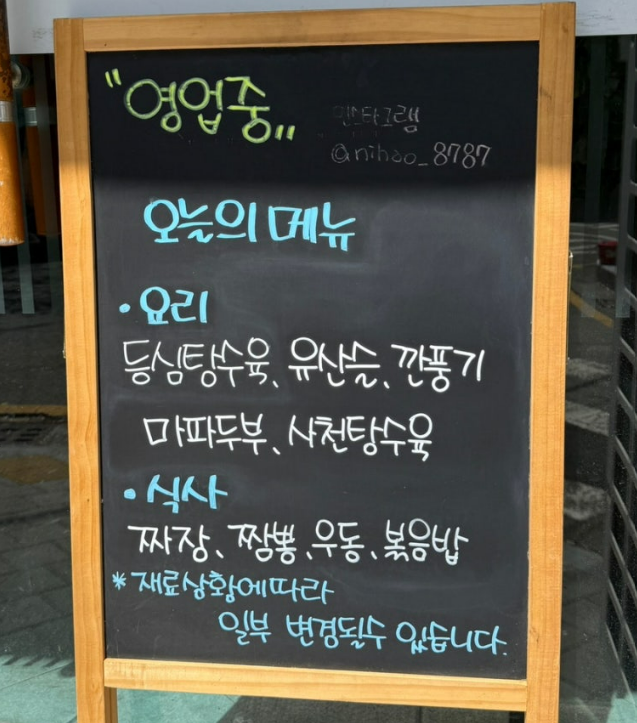 "영업중"
인스타그램
@nihao_8787
오늘의 메뉴
• 요리
등심탕수육, 유산슬, 깐풍기
마파두부, 사천탕수육
• 식사
짜장, 짬뽕, 우동, 볶음밥
* 재료상황에따라
일부 변경될수 있습니다.